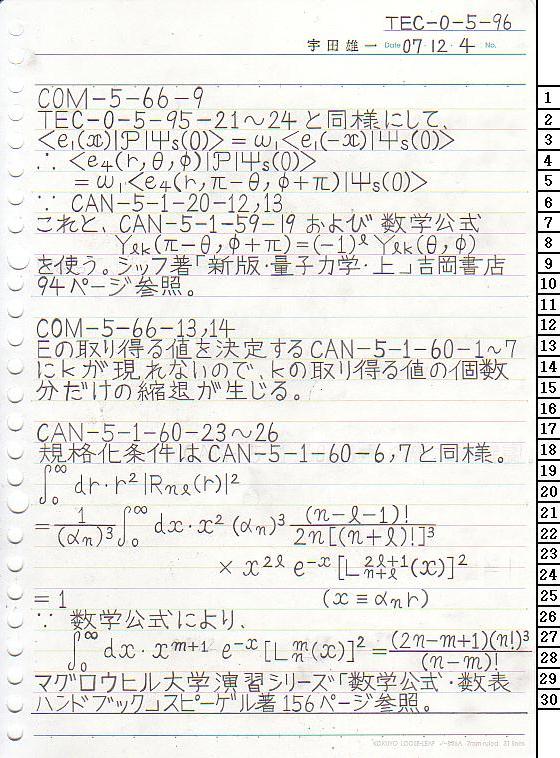 TEC-0-5-96
宇田雄一 Date 07・12・4 No.
COM-5-66-9
TEC-0-5-95-21～24と同様にして、
<e₁(x)|P|Ψs(0)> = ω₁<e₁(-x)|Ψs(0)>
∴ <e₄(r,θ,φ)|P|Ψs(0)>
= ω₁<e₄(r,π-θ,φ+π)|Ψs(0)>
∵ CAN-5-1-20-12,13
これと、CAN-5-1-59-19および数学公式
Yℓk(π-θ,φ+π)=(-1)^ℓ Yℓk(θ,φ)
を使う。シッフ著「新版・量子力学・上」吉岡書店
94ページ参照。
COM-5-66-13,14
Eの取り得る値を決定するCAN-5-1-60-1～7
にkが現れないので、kの取り得る値の個数
分だけの縮退が生じる。
CAN-5-1-60-23～26
規格化条件はCAN-5-1-60-6,7と同様。
∫₀^∞ dr・r²|Rnℓ(r)|²
= 1/(αn)³ ∫₀^∞ dx・x² (αn)³ (n-ℓ-1)!/2n[(n+ℓ)!]³
× x^{2ℓ} e^{-x} [L^{2ℓ+1}_{n+ℓ}(x)]²
= 1 (x ≡ αn r)
∵ 数学公式により、
∫₀^∞ dx・x^{m+1} e^{-x} [L^m_n(x)]² = (2n-m+1)(n!)³/(n-m)!
マグロウヒル大学演習シリーズ「数学公式・数表
ハンドブック」スピーゲル著156ページ参照。
KOKUYO LOOSE-LEAF ノ-836A 7mm ruled 31 lines
1
2
3
4
5
6
7
8
9
10
11
12
13
14
15
16
17
18
19
20
21
22
23
24
25
26
27
28
29
30